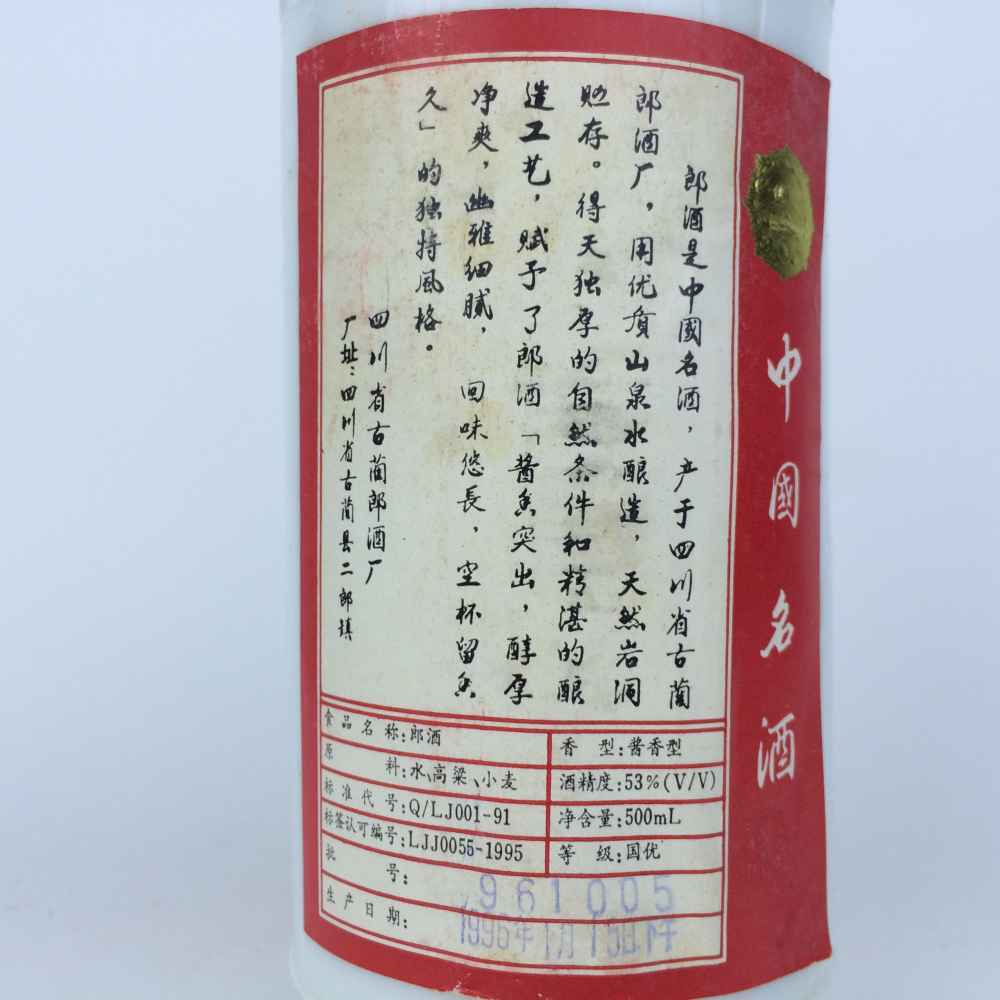 郎酒是中國名酒，产于四川省古蔺
郎酒厂，用优质山泉水酿造，天然岩洞
贮存。得天独厚的自然条件和精湛的酿
造工艺，赋予了郎酒「酱香突出，醇厚
净爽，幽雅细腻，回味悠長，空杯留香
久」的独特風格。
四川省古蔺郎酒厂
厂址：四川省古蔺县二郎镇
食品名称：郎酒
香型：酱香型
原料：水、高粱、小麦
酒精度：53%(V/V)
标准代号：Q/LJ001-91
净含量：500mL
标签认可编号：LJJ0055-1995
等级：国优
批号：961005
生产日期：1996年1月15日
中國名酒